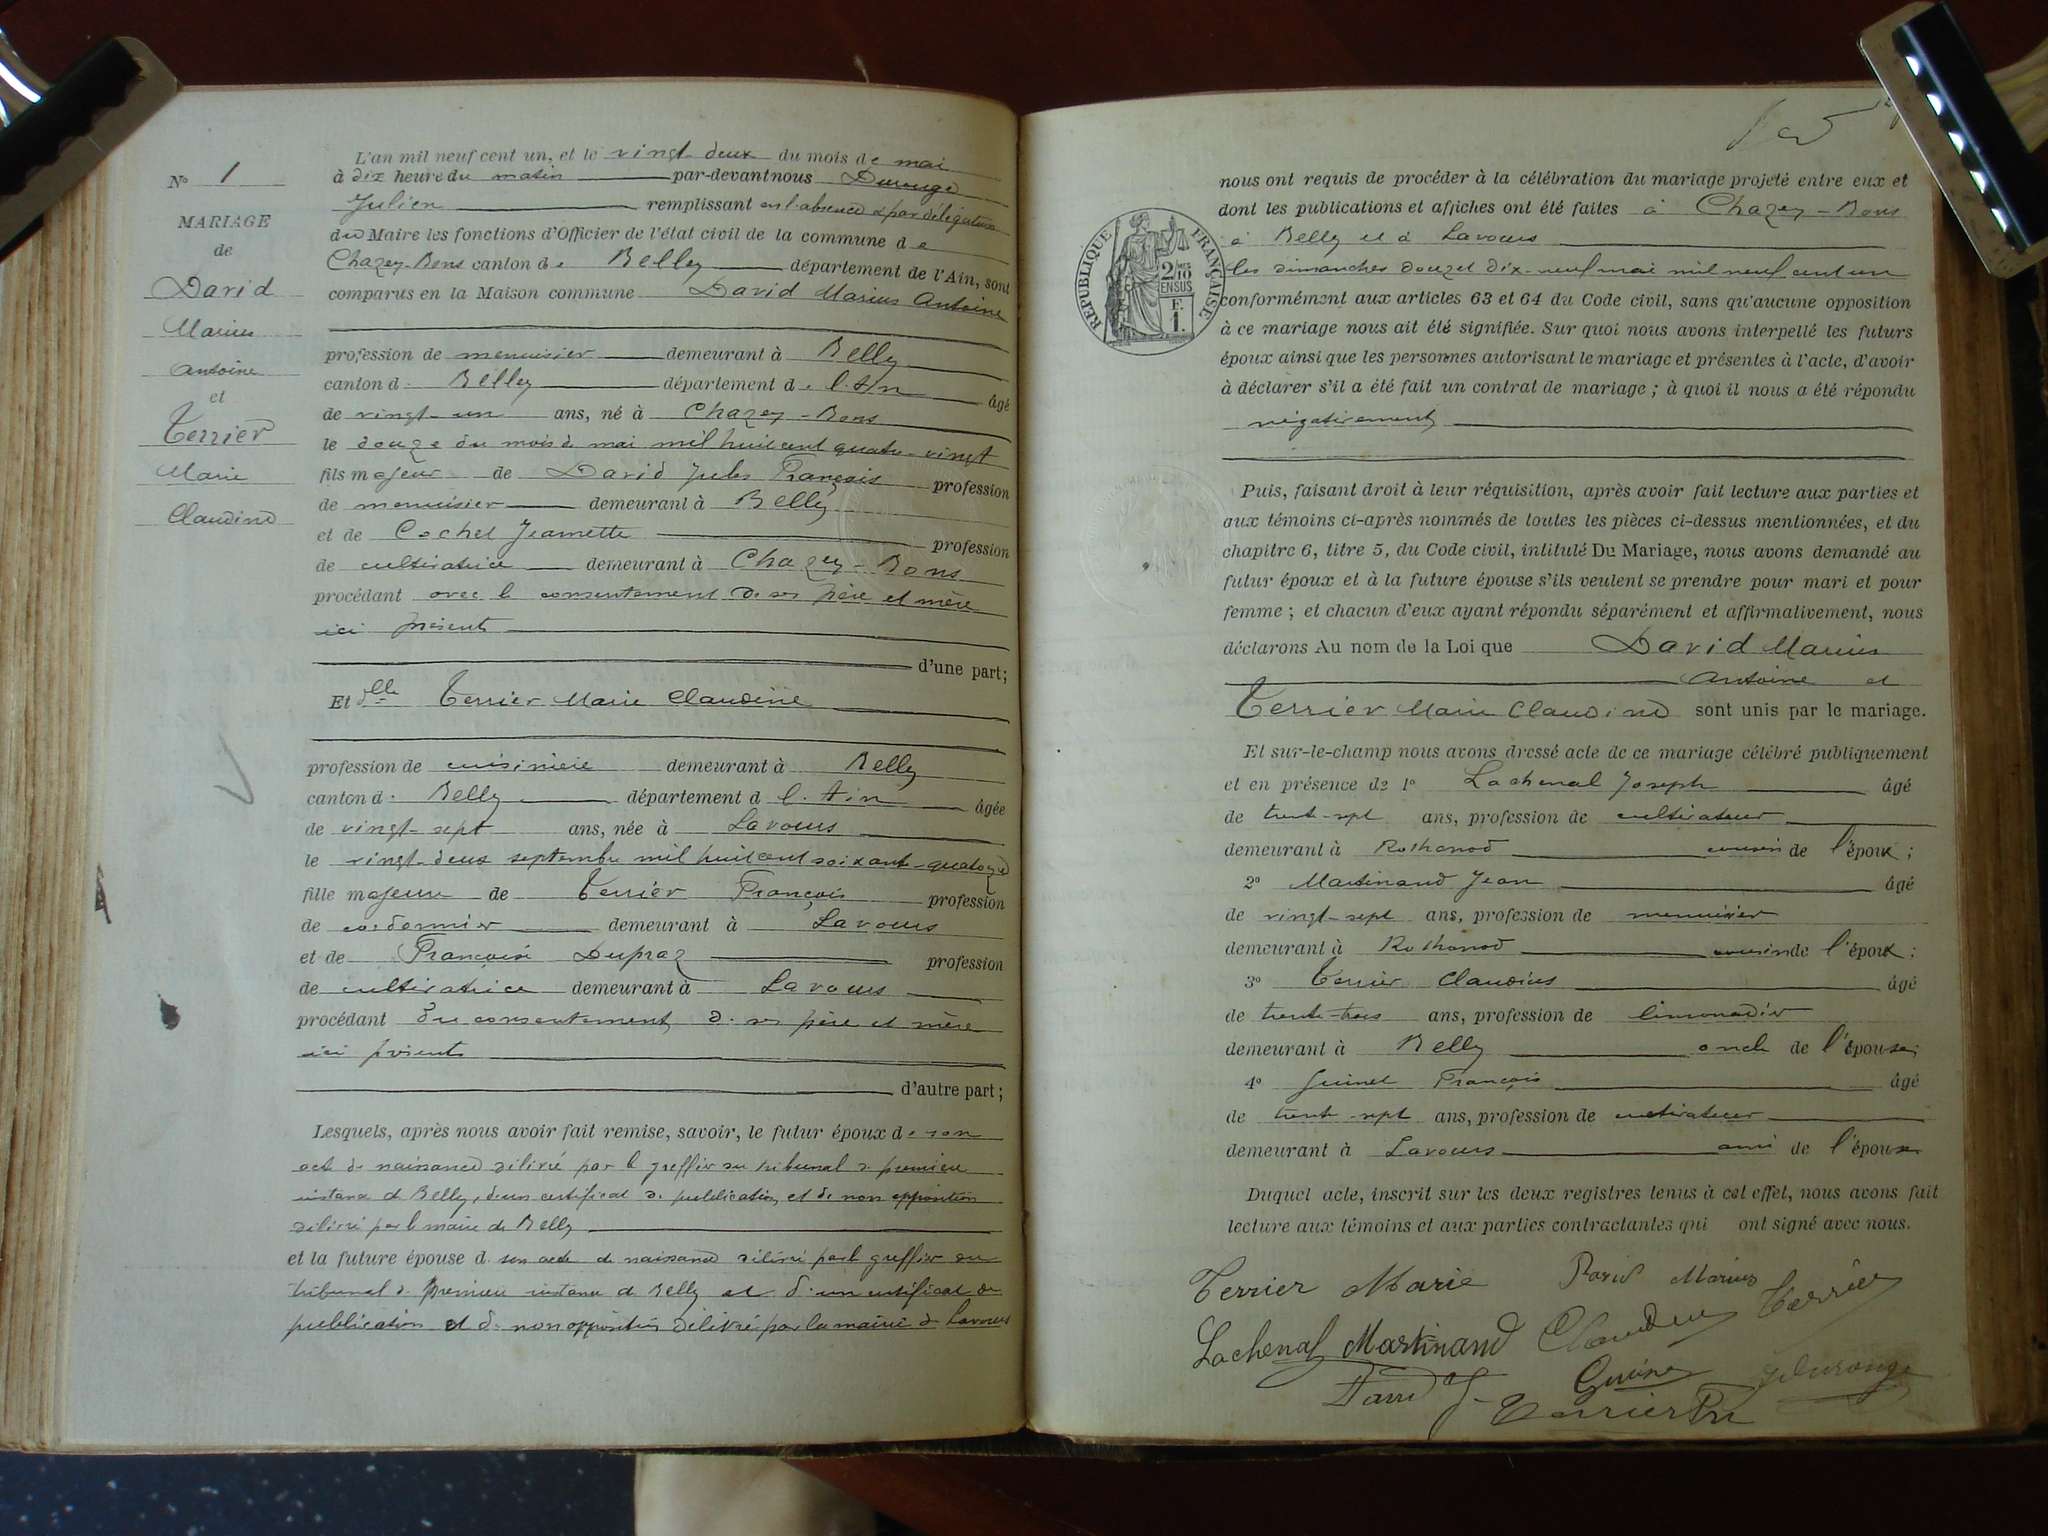 N° 1
MARIAGE
de
David
Marius
Antoine
et
Terrier
Marie
Claudine
L'an mil neuf cent un, et le vingt deux du mois de mai
à dix heure du matin par-devant nous Durouge
Julien remplissant en l'absence & par délégation
du Maire les fonctions d'Officier de l'état civil de la commune de
Chazey-Bons canton de Belley département de l'Ain, sont
comparus en la Maison commune David Marius Antoine
profession de menuisier demeurant à Belley
canton de Belley département de l'Ain âgé
de vingt-un ans, né à Chazey-Bons
le douze du mois de mai mil huit cent quatre-vingt
fils majeur de David Jules François profession
de menuisier demeurant à Belley
et de Cochet Jeannette profession
de cultivatrice demeurant à Chazey-Bons
procédant avec le consentement de ses père et mère
ici présents
d'une part;
Et dlle Terrier Marie Claudine
profession de cuisinière demeurant à Belley
canton de Belley département de l'Ain âgée
de vingt-sept ans, née à Lavours
le vingt-deux septembre mil huit cent soixante-quatorze
fille majeure de Terrier François profession
de cordonnier demeurant à Lavours
et de Françoise Dupraz profession
de cultivatrice demeurant à Lavours
procédant du consentement de ses père et mère
ici présents
d'autre part;
Lesquels, après nous avoir fait remise, savoir, le futur époux de son
acte de naissance délivré par le greffier du tribunal de première
instance de Belley, d'un certificat de publication et de non opposition
délivré par le maire de Belley
et la future épouse de son acte de naissance délivré par le greffier du
tribunal de première instance de Belley et d'un certificat de
publication et de non opposition délivré par la mairie de Lavours
RÉPUBLIQUE FRANÇAISE
2/10
EN SUS
F.
1.
nous ont requis de procéder à la célébration du mariage projeté entre eux et
dont les publications et affiches ont été faites à Chazey-Bons
à Belley et à Lavours
les dimanches douze et dix-neuf mai mil neuf cent un
conformément aux articles 63 et 64 du Code civil, sans qu'aucune opposition
à ce mariage nous ait été signifiée. Sur quoi nous avons interpellé les futurs
époux ainsi que les personnes autorisant le mariage et présentes à l'acte, d'avoir
à déclarer s'il a été fait un contrat de mariage; à quoi il nous a été répondu
négativement
Puis, faisant droit à leur réquisition, après avoir fait lecture aux parties et
aux témoins ci-après nommés de toutes les pièces ci-dessus mentionnées, et du
chapitre 6, titre 5, du Code civil, intitulé Du Mariage, nous avons demandé au
futur époux et à la future épouse s'ils veulent se prendre pour mari et pour
femme; et chacun d'eux ayant répondu séparément et affirmativement, nous
déclarons Au nom de la Loi que David Marius
Antoine et
Terrier Marie Claudine sont unis par le mariage.
Et sur-le-champ nous avons dressé acte de ce mariage célébré publiquement
et en présence de 1° Lachenal Joseph âgé
de trente-sept ans, profession de cultivateur
demeurant à Rothonod cousin de l'époux;
2° Martinand Jean âgé
de vingt-sept ans, profession de menuisier
demeurant à Rothonod cousin de l'époux;
3° Terrier Claudius âgé
de trente-trois ans, profession de limonadier
demeurant à Belley oncle de l'épouse;
4° Guinet François âgé
de trente-sept ans, profession de cultivateur
demeurant à Lavours ami de l'époux
Duquel acte, inscrit sur les deux registres tenus à cet effet, nous avons fait
lecture aux témoins et aux parties contractantes qui ont signé avec nous.
Terrier Marie David Marius
Lachenal Martinand Claudius Terrier
David J. Guinet JDurouge
Terrier